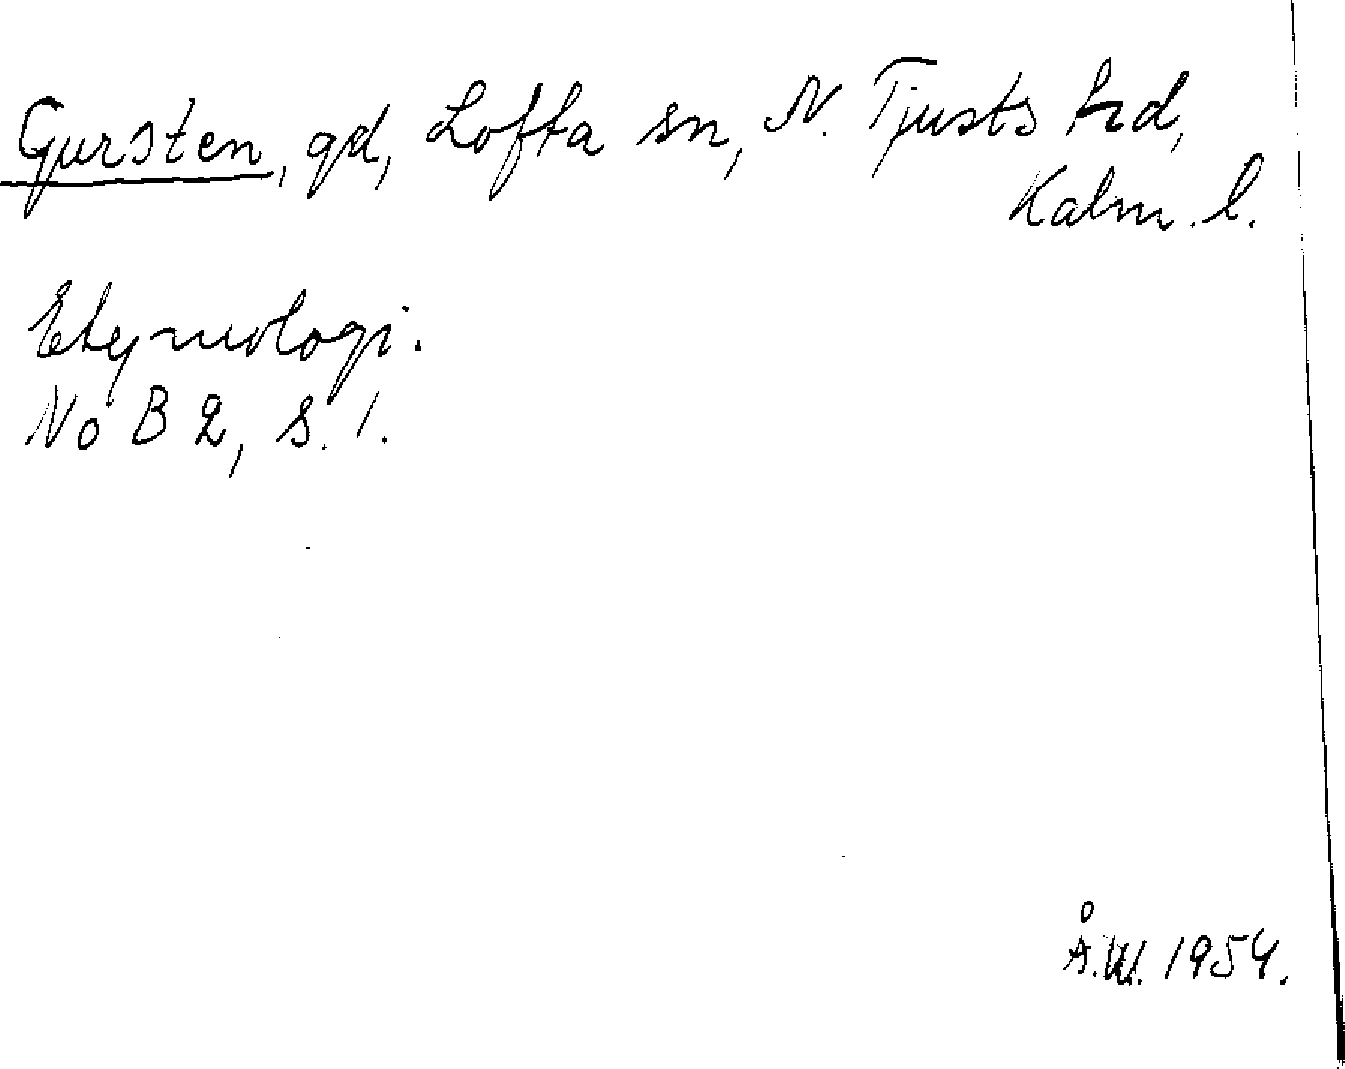 Gursten, gd, Lofta sn, N. Tjusts hd,
Kalm. l.
Etymologi.
NoB 2, s. 1.
Å.W. 1954.